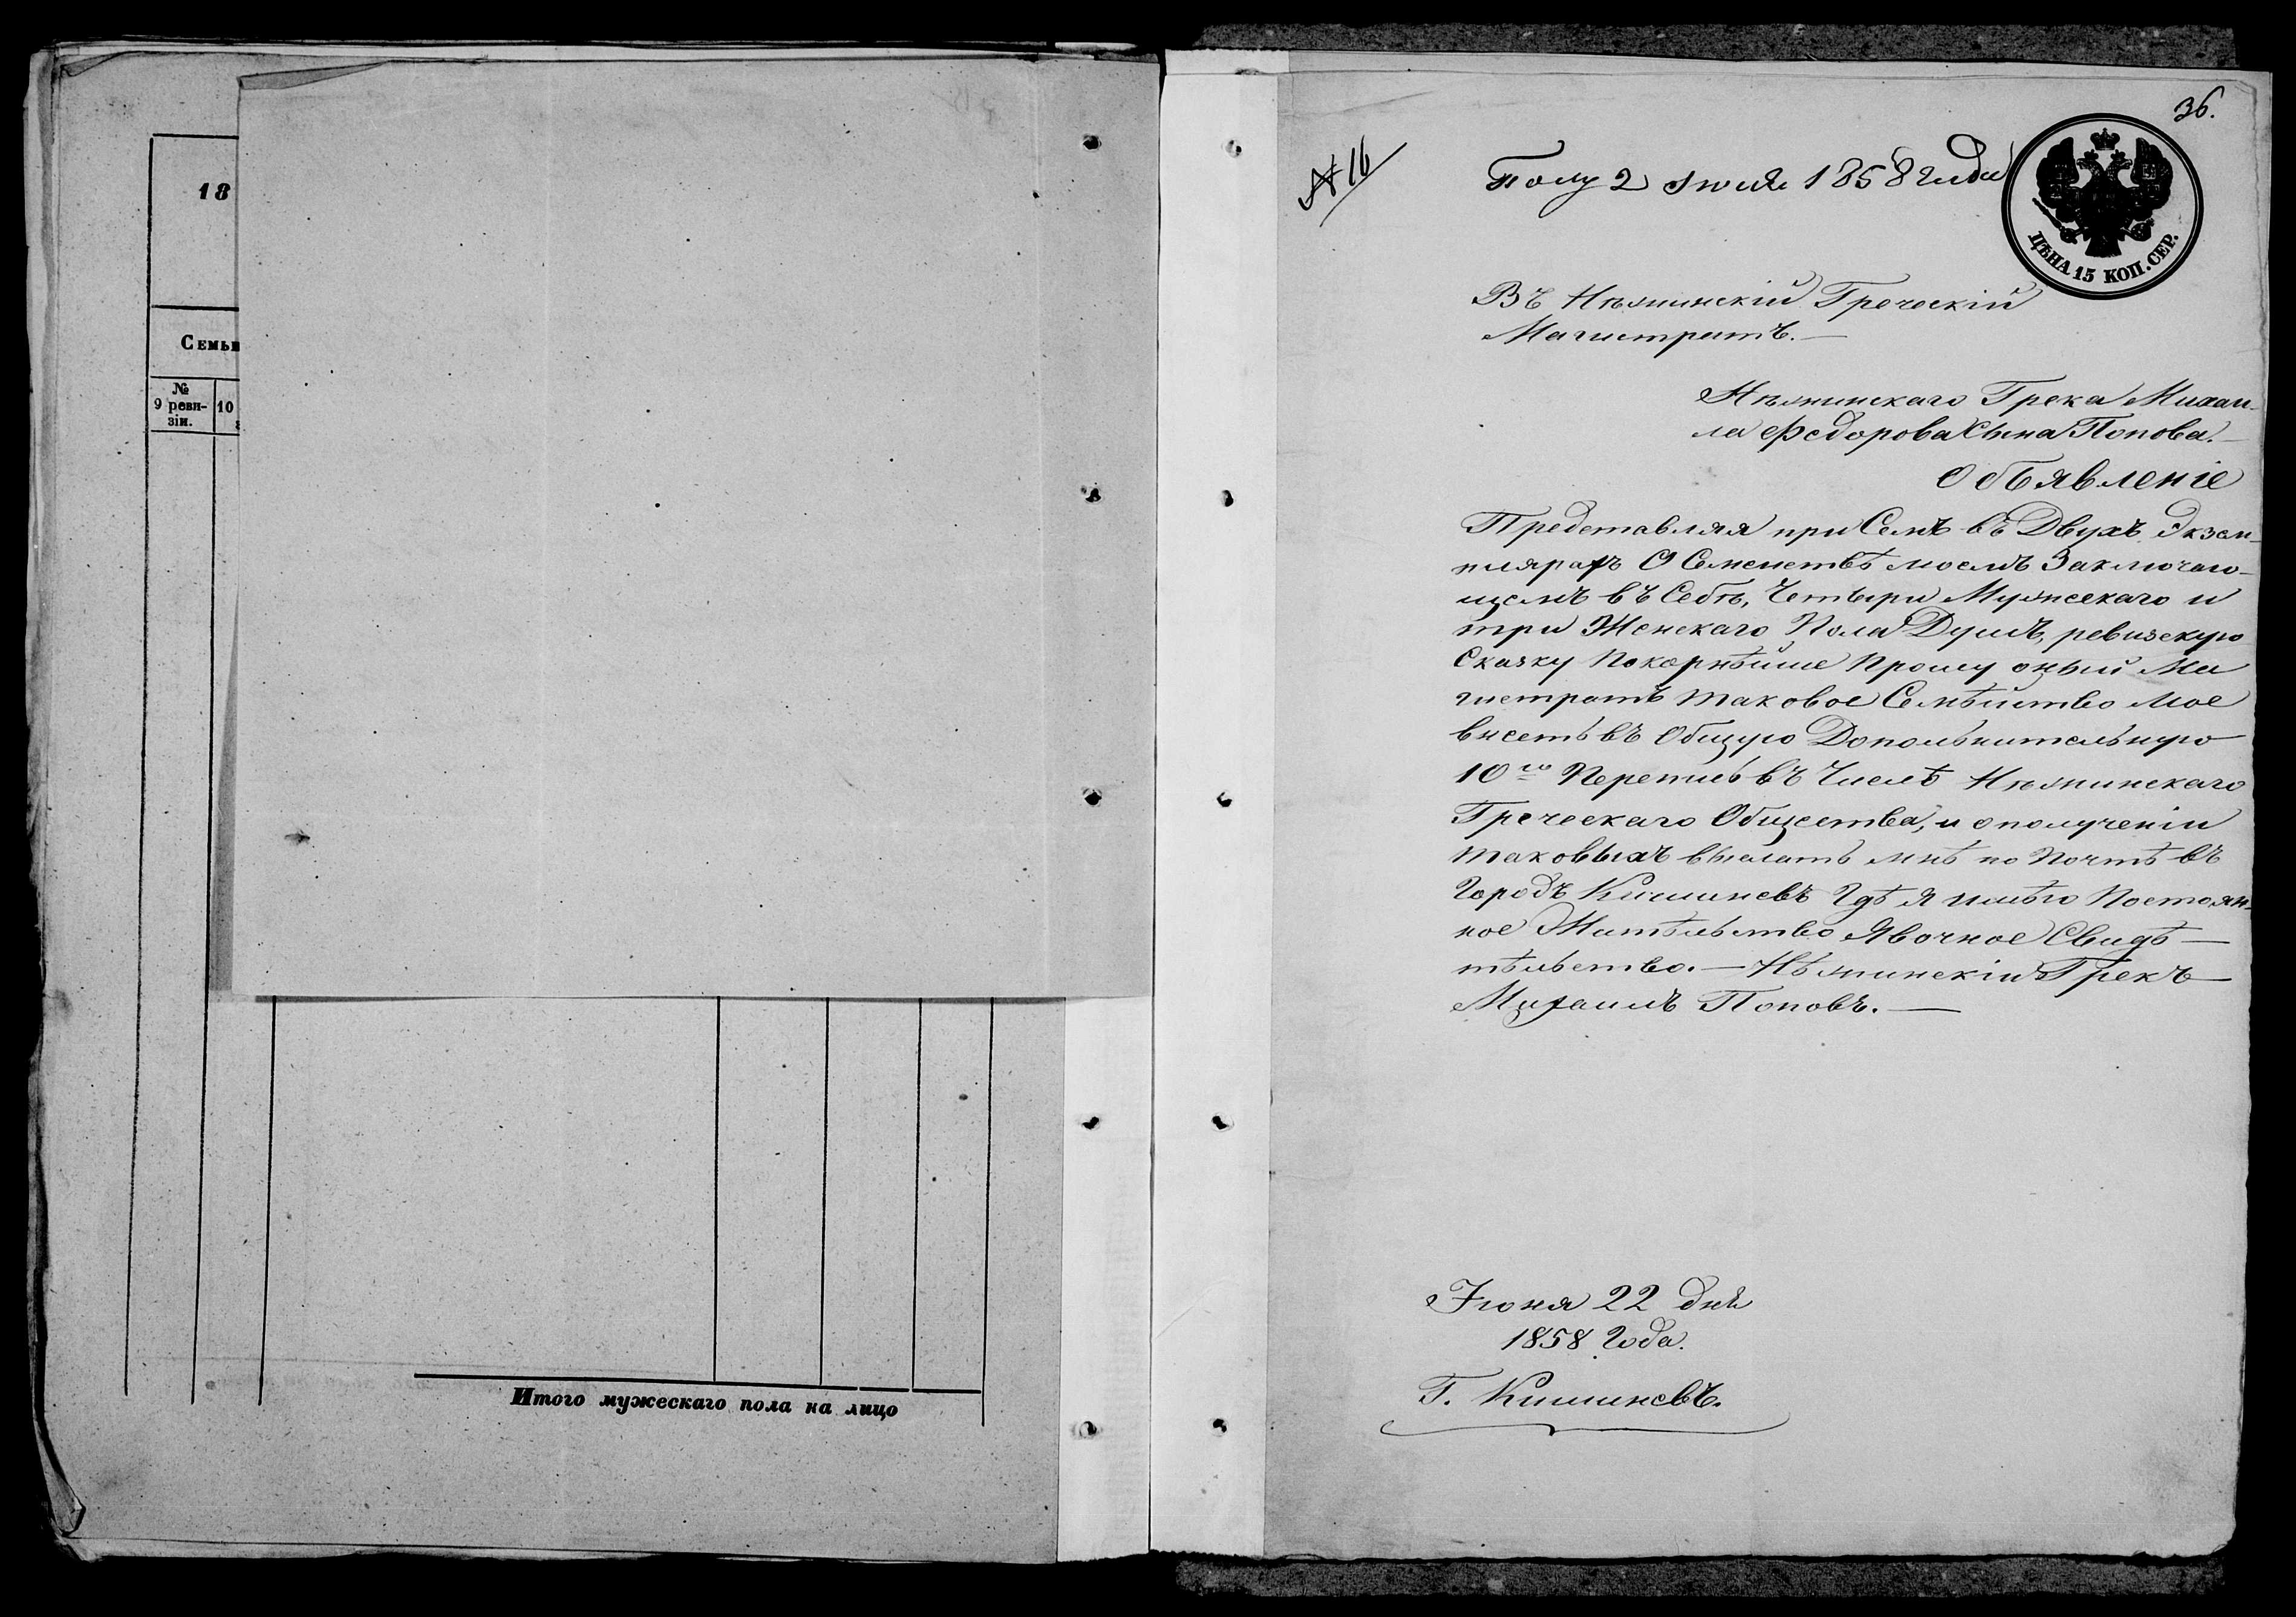 18
Семьи
№
9 реви-
зіи.
10
Итого мужескаго пола на лицо
36.
№ 16
Полу 2 Июля 1858 года
ЦѢНА 15 КОП. СЕР.
Въ Нѣжинскій Греческій
Магистратъ.—
Нѣжинскаго Грека Михаи-
ла Федорова Сына Попова.—
Объявленіе
Представляя при Семъ въ Двухъ Экзем-
плярахъ О Семействѣ моемъ Заключаю-
щемъ въ Себѣ, Четыри Мужескаго и
три Женскаго Пола Душъ, ревизскую
Сказку Покорнѣйше Прошу оный Ма
гистратъ таковое Семѣйство мое
внесть въ Общую Дополънительную
10ю Перепись въ Числѣ Нѣжинскаго
Греческаго Общества, и ополученіи
таковыхъ выслать мнѣ по Почтѣ въ
Городъ Кишиневъ Гдѣ я имѣю Постоян-
ное Житѣльство Явочное Свидѣ—
тѣльство.— Нѣжинскій Грекъ—
Михаилъ Поповъ.—
Іюня 22 дня
1858 Года.
Г. Кишиневъ.